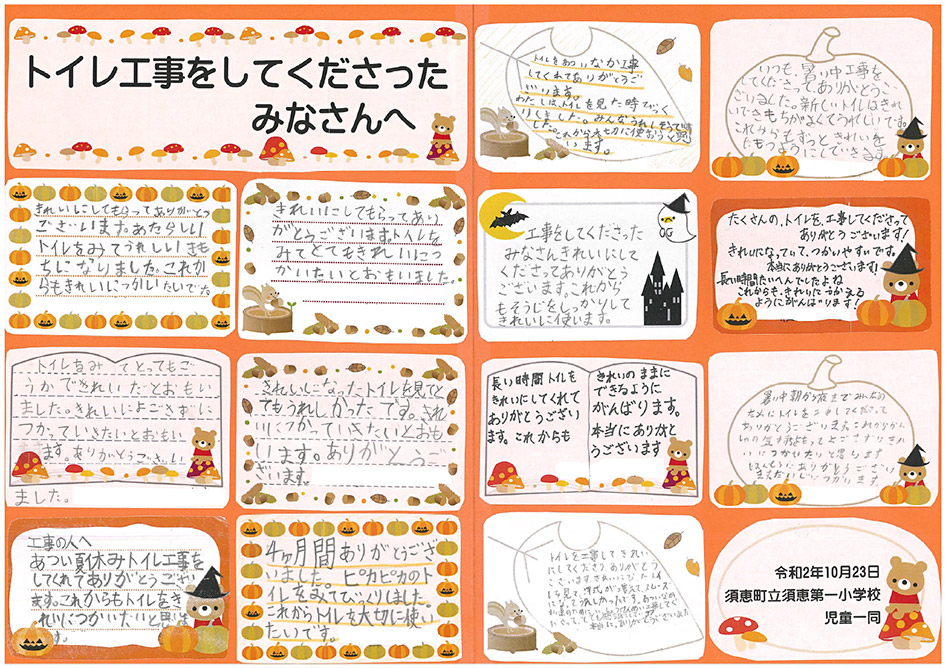 トイレ工事をしてくださった
みなさんへ
きれいにしてもらってありがとう
ございます。あたらしい
トイレをみてうれしいきも
ちになりました。これか
らもきれいにつかいたいです。
きれいにしてもらってあり
がとうございます。トイレを
みてとてもきれいにつ
かいたいとおもいました
トイレをみてとってもご
うかできれいだとおもい
ました。きれいによごさずに
つかっていきたいとおもい
ます。ありがとうございし
ました。
きれいになったトイレを見てと
てもうれしかったです。きれ
いにつかっていきたいとおも
います。ありがとうご
ざいます。
工事の人へ
あつい夏休みトイレ工事を
してくれてありがとうござい
ます。これからもトイレをき
れいにつかいたいと思い
ます。
4ヶ月間ありがとうござ
いました。ピカピカのト
イレをみてびっくりしました。
これからトイレを大切に使い
たいです。
トイレをあついなか工事
してくれてありがとうご
ざいます。
わたしは、トイレを見た時びっく
りしました。みんなうれしそうで
す。これから大切に使おうと思
います。
いつも、暑い中工事を
してくださってありがとうご
ざいました。新しいトイレはきれ
いできもちがよくてうれしいです。
これからもずっときれいを
たもつようにしていきます。
工事をしてくださった
みなさんきれいにして
くださってありがとう
ございます。これから
もそうじをしっかりして
きれいに使います。
たくさんの、トイレを、工事してくださって
ありがとうございます!
きれいになっていて、つかいやすいです。
本当にありがとうございます!
長い時間たいへんでしたよね
これからも、きれいにつかえる
ようにがんばります!
長い時間トイレを
きれいにしてくれて
ありがとうござい
ます。これからも
きれいのままに
できるように
がんばります。
本当にありがと
うございます
暑い中朝から夜まで
ためにトイレを工事してくださって
ありがとうございます。
いにつかいたいと思います
ありがとうござい
トイレを工事してきれい
にしてくださり、ありがとうご
ざいます。きれいになったトイレ
を見て、洋式が増えてスムーズ
になってうれしかったです。
本当に、ありがとうございました
令和2年10月23日
須恵町立須恵第一小学校
児童一同